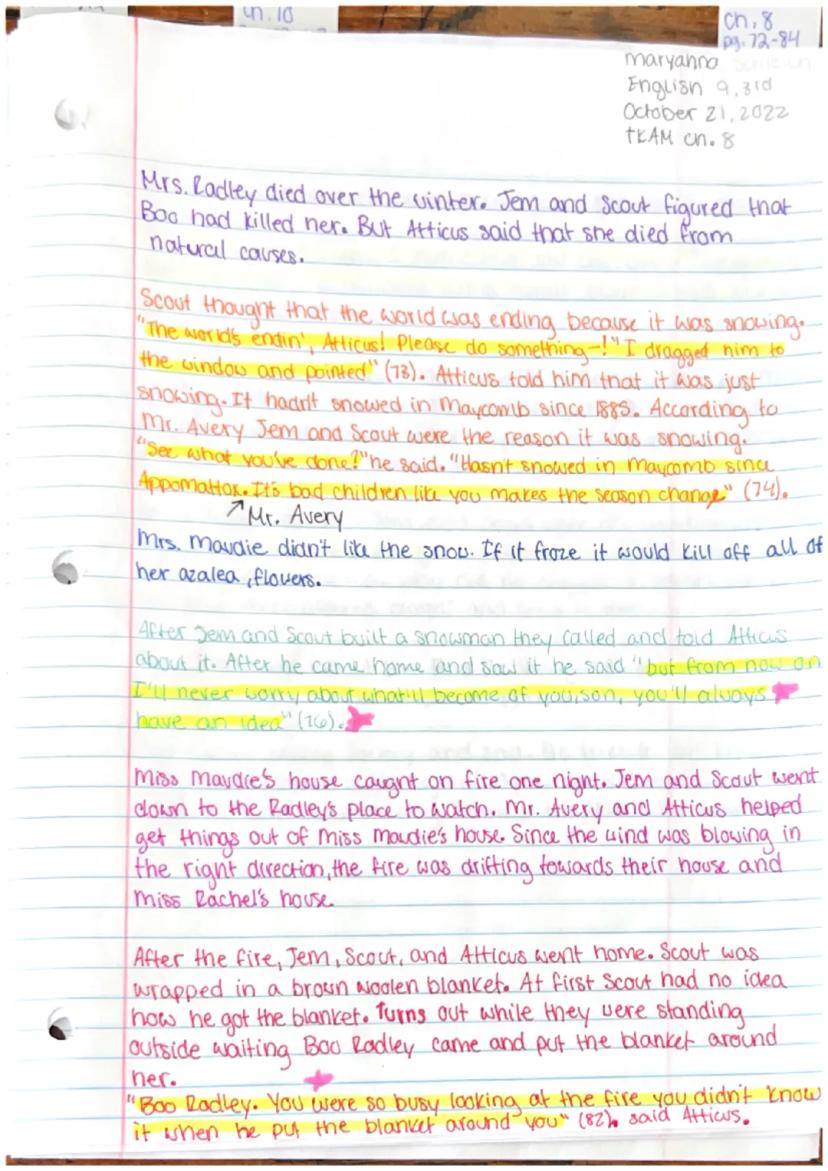 Ch. 10
Ch. 8
pg. 72-84
maryanna
English 9, 3rd
October 21, 2022
TKAM Ch. 8
Mrs. Radley died over the winter. Jem and Scout figured that
Boo had killed her. But Atticus said that she died from
natural causes.
Scout thought that the world was ending because it was snowing.
"The world's endin', Atticus! Please do something-!" I dragged him to
the window and pointed" (73). Atticus told him that it was just
snowing. It hadn't snowed in Maycomb since 1885. According to
Mr. Avery Jem and Scout were the reason it was snowing.
"See what you've done?" he said. "Hasnt snowed in Maycomb since
Appomattox. It's bad children like you makes the season change" (74).
Mr. Avery
Mrs. Maudie didn't like the snow. If it froze it would kill off all of
her azalea, flowers.
After Jem and Scout built a snowman they called and told Atticus
about it. After he came home and saw it he said "but from now on
I'll never worry about what'll become of you, son, you'll always
have an idea" (76).
Miss Maudie's house caught on fire one night. Jem and Scout went
down to the Radley's place to watch. Mr. Avery and Atticus helped
get things out of Miss Maudie's house. Since the wind was blowing in
the right direction, the fire was drifting towards their house and
Miss Rachel's house.
After the fire, Jem, Scout, and Atticus went home. Scout was
wrapped in a brown woolen blanket. At first Scout had no idea
how he got the blanket. Turns out while they were standing
outside waiting Boo Radley came and put the blanket around
her.
"Boo Radley. You were so busy looking at the fire you didn't know
it when he put the blanket around you" (82). said Atticus.